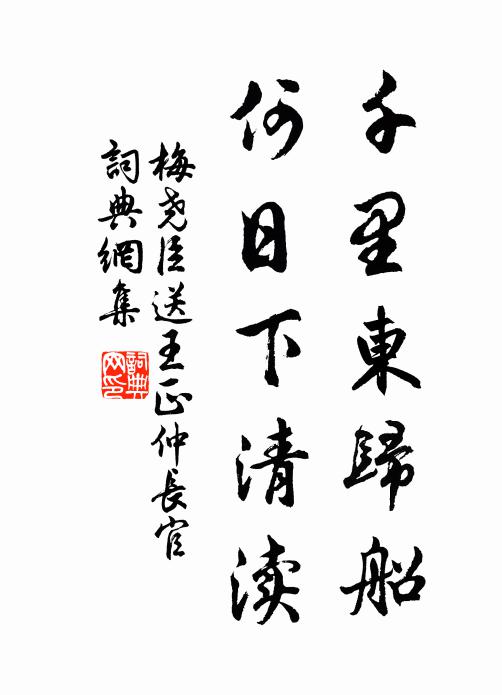 千里東歸船
何日下清渎
梅尧臣送王正仲長官
詞典網集
詞典
网印